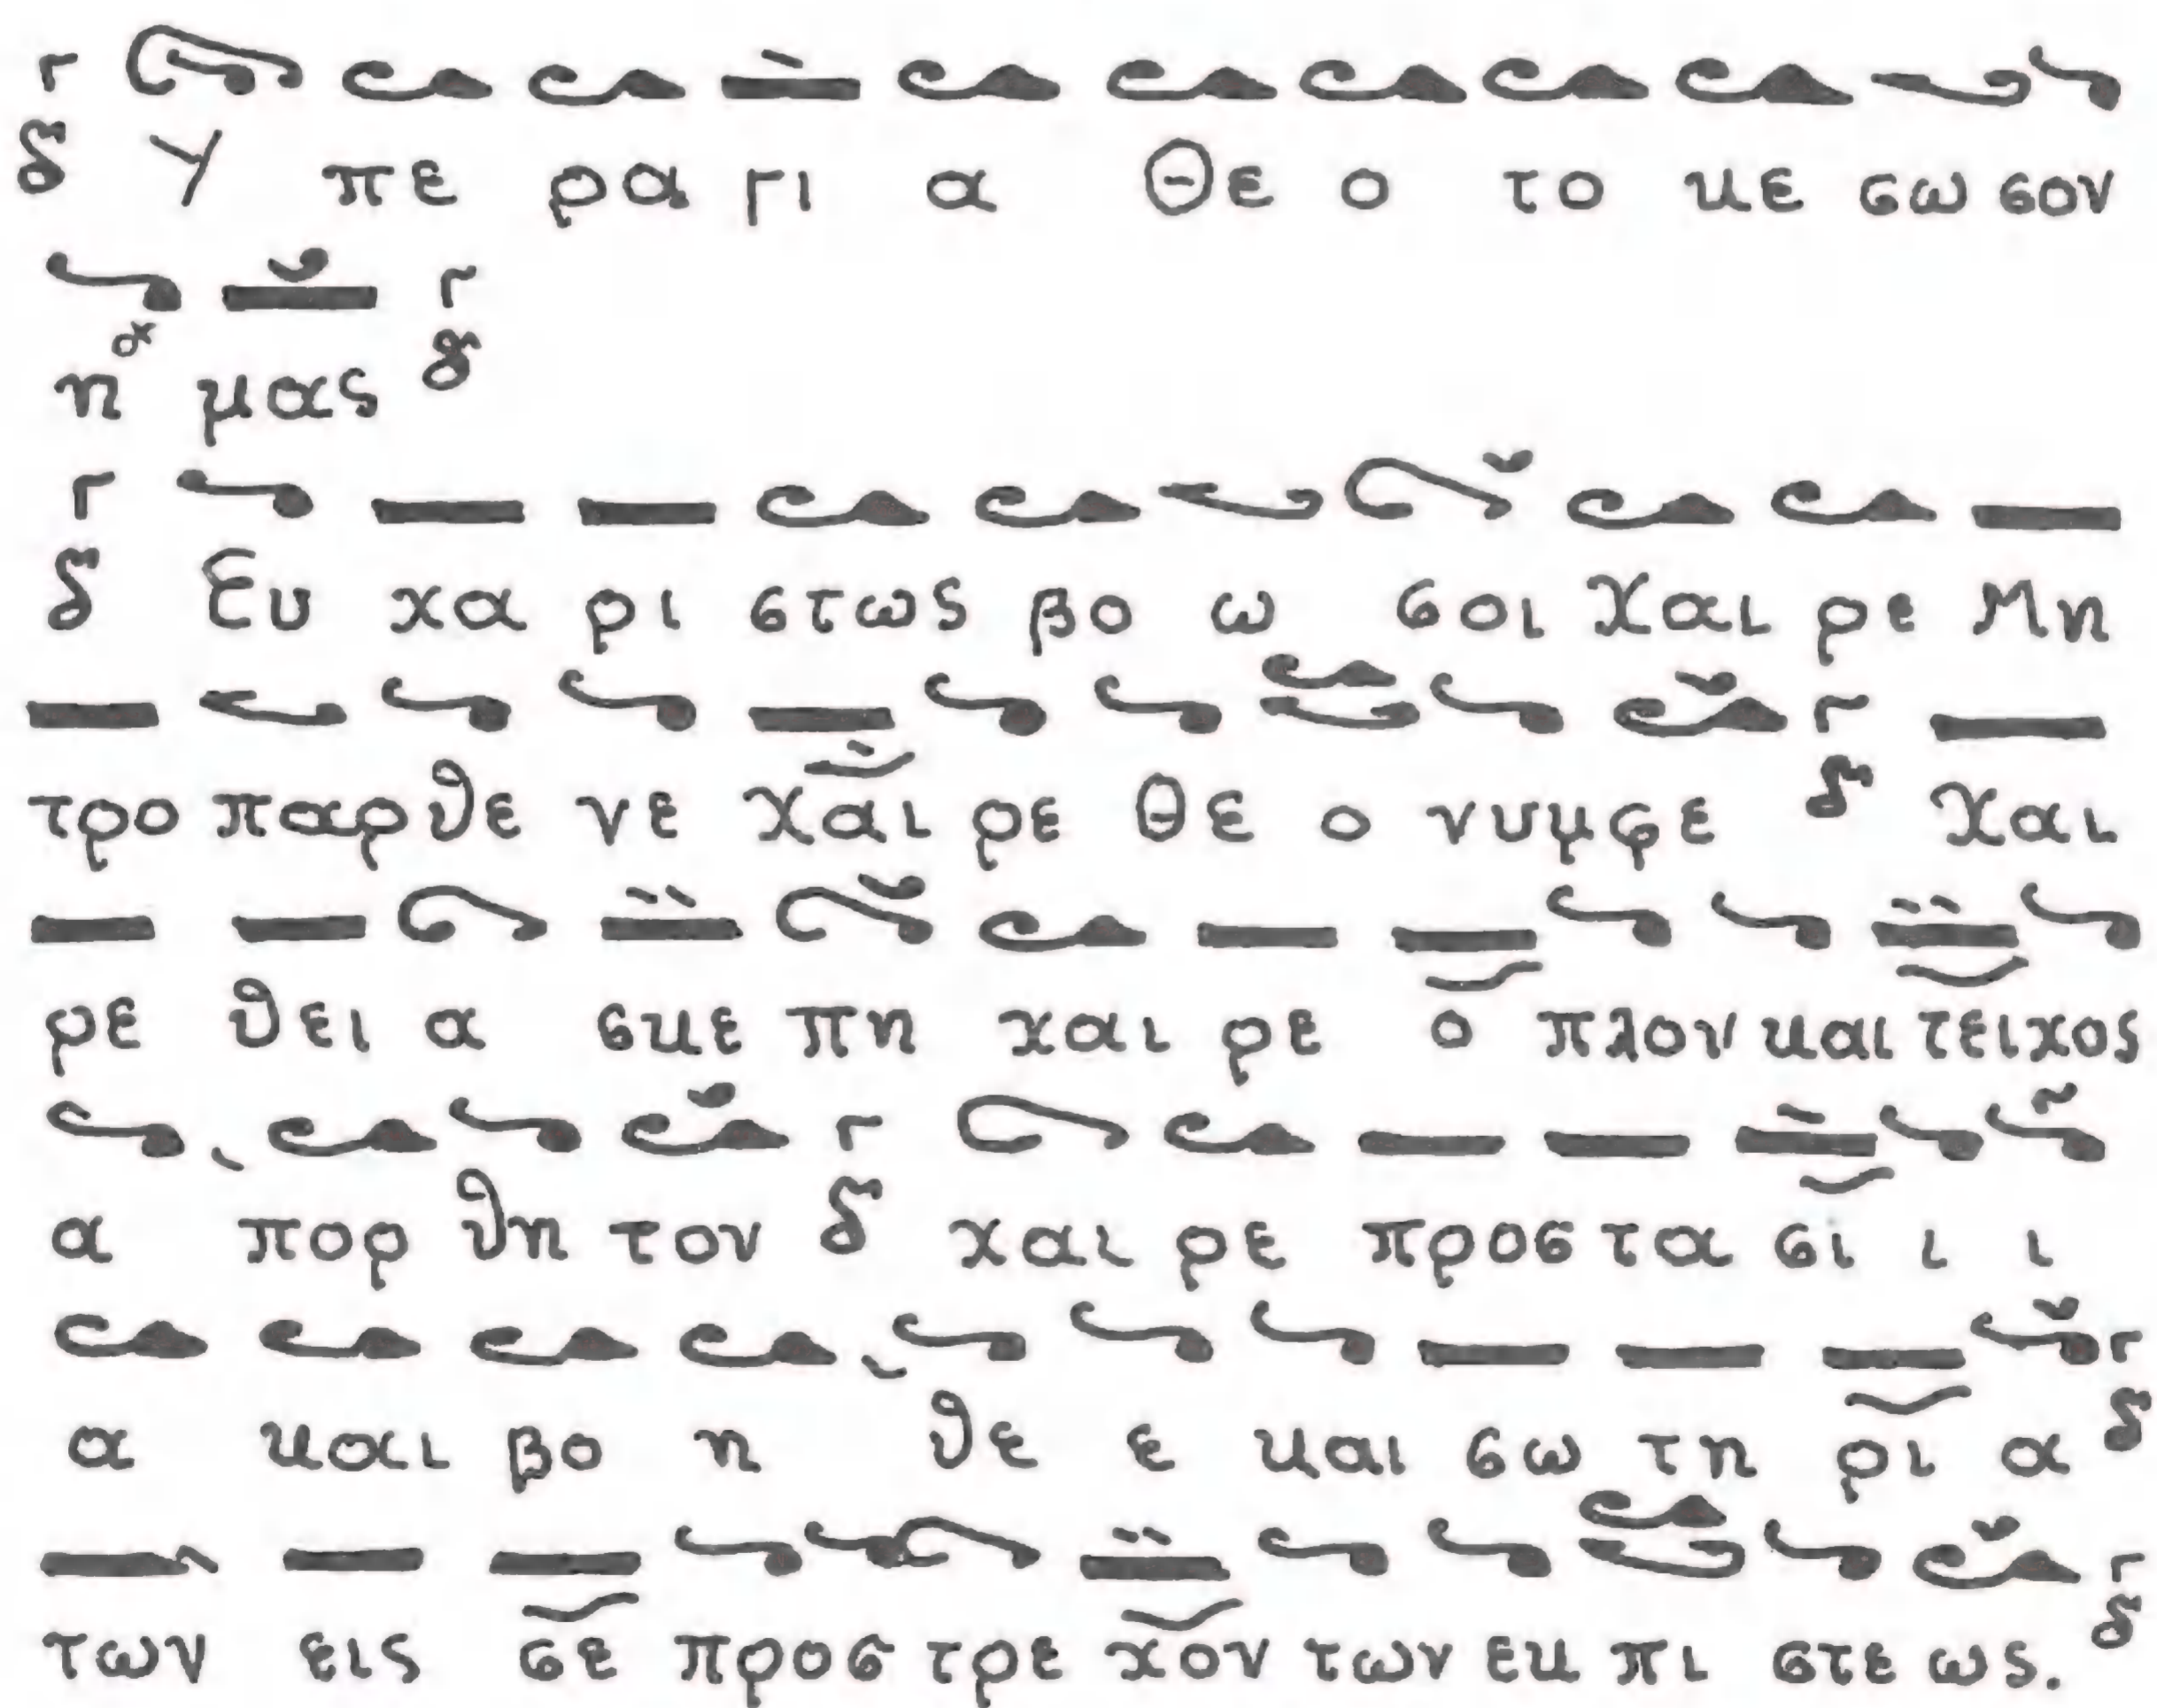 δ Υ πε ρα γι α Θε ο το κε σω σον
η μας δ
δ Ευ χα ρι στως βο ω σοι Χαι ρε Μη
τρο παρ θε νε χαι ρε θε ο νυμφε δ Χαι
ρε θει α σκε πη χαι ρε ο πλον και τειχος
α πορ θη τον δ χαι ρε προσ τα σι ι ι
α και βο η θε ε και σω τη ρι α δ
των εις σε προσ τρε χον των εκ πι στε ως. δ